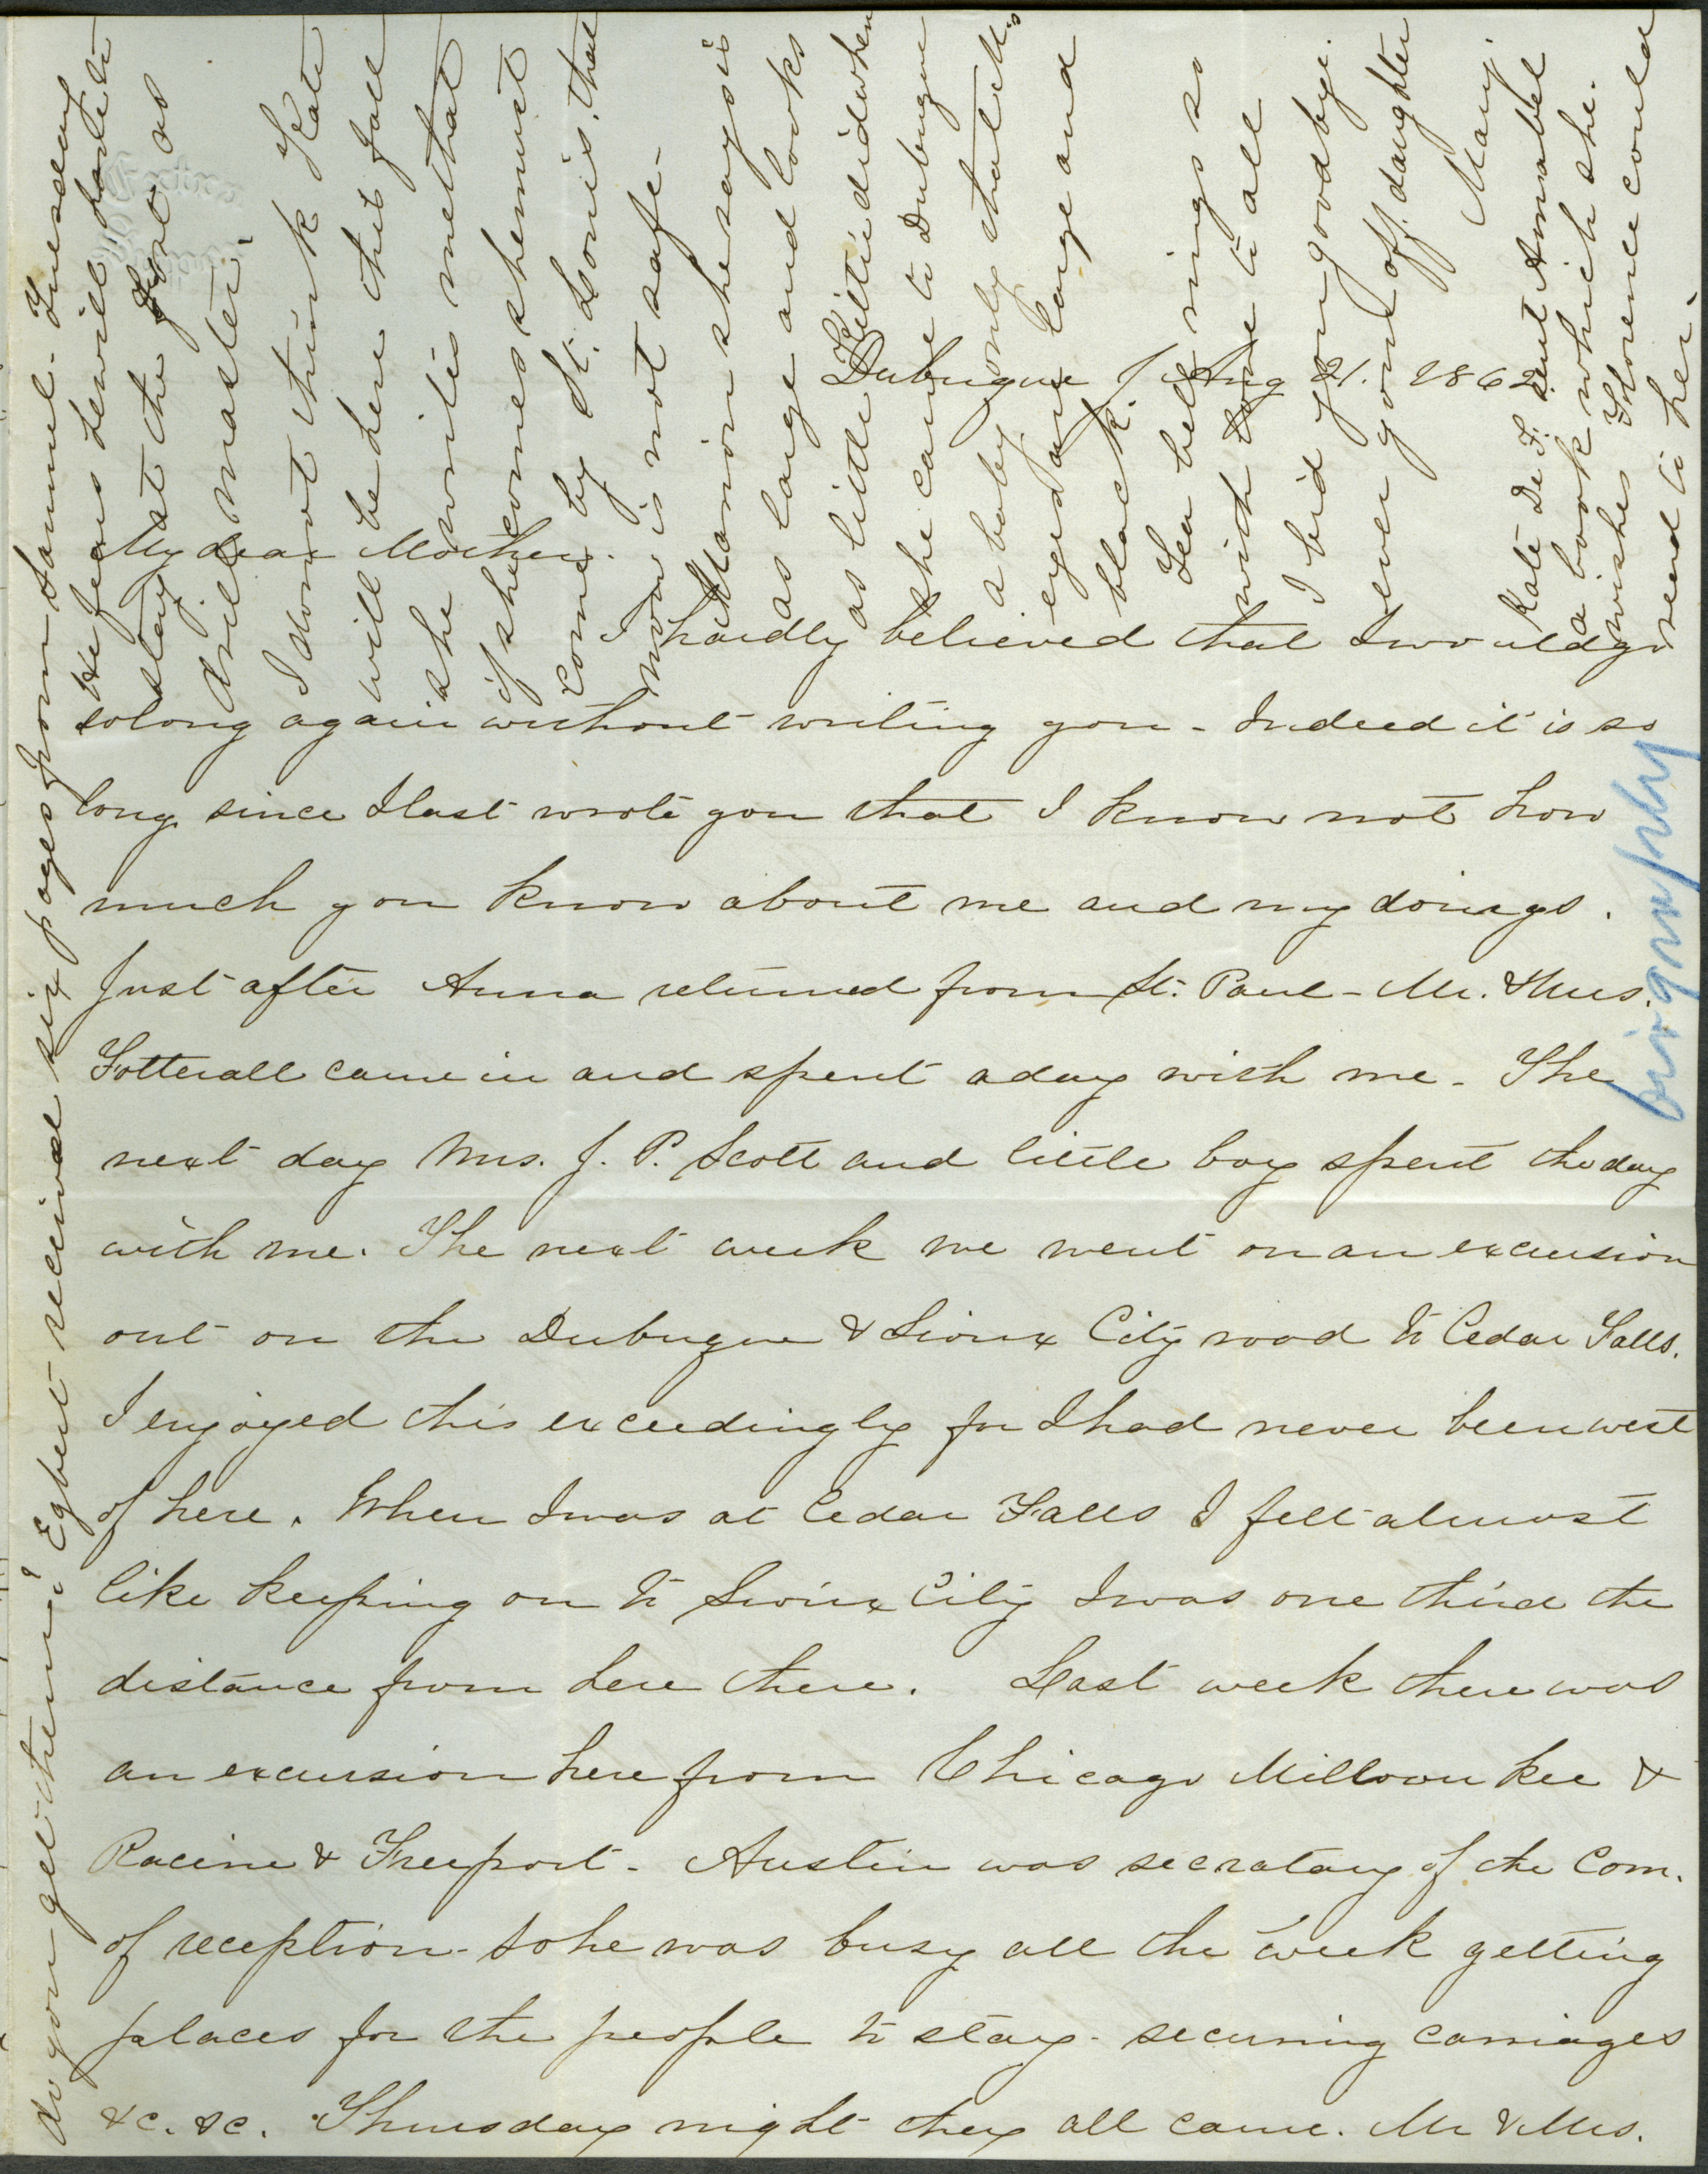 Dubuque, J Aug 21. 1862.
My dear Mother.
I hardly believed that I would go
so long again without writing you - Indeed it is so
long since I last wrote you that I know not how
much you know about me and my doings.
Just after Anna returned from St. Paul - Mr. & Mrs.
Fotterall came in and spent a day with me - The
next day Mrs. J. P. Scott and little boy spent the day
with me. The next week we went on an excursion
out on the Dubuque & Sioux City road to Cedar Falls.
I enjoyed this exceedingly for I had never been west
of here. When I was at Cedar Falls I felt almost
like keeping on to Sioux City I was one third the
distance from here there. Last week there was
an excursion here from Chicago Millwaukee &
Racine & Freeport - Austin was secratary of the Com.
of reception - so he was busy all the week getting
places for the people to stay - securing carriages
&c. &c. Thursday night they all came. Mr & Mrs.
do you get them? Egbert received six pages from Samuel - Tuesday
He fears he will have to
stay at the fort as
drill master.
I do not think Kate
will be here this fall
she writes me that
if she comes she must
come by St. Louis, that
now is not safe -
Marion she says is
as large and looks
as little Kittie did when
she came to Dubuque
a baby, only that M's
eyes are large and
black.
Tea bell rings so
with love to all
I bid you goodbye.
ever yours off. daughter
Mary
Kate De F. sent Annabel
a book which she.
wishes Florence could
read to her.